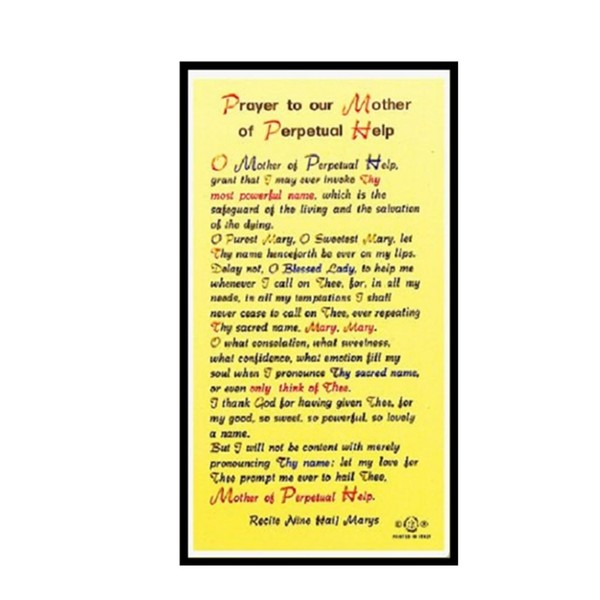 Prayer to our Mother
of Perpetual Help
O Mother of Perpetual Help,
grant that I may ever invoke Thy
most powerful name, which is the
safeguard of the living and the salvation
of the dying.
O Purest Mary, O Sweetest Mary, let
Thy name henceforth be ever on my lips.
Delay not, O Blessed Lady, to help me
whenever I call on Thee, for, in all my
needs, in all my temptations I shall
never cease to call on Thee, ever repeating
Thy sacred name, Mary, Mary.
O what consolation, what sweetness,
what confidence, what emotion fill my
soul when I pronounce Thy sacred name,
or even only think of Thee.
I thank God for having given Thee, for
my good, so sweet, so powerful, so lovely
a name.
But I will not be content with merely
pronouncing Thy name: let my love for
Thee prompt me ever to hail Thee,
Mother of Perpetual Help.
Recite Nine Hail Marys
PRINTED IN ITALY